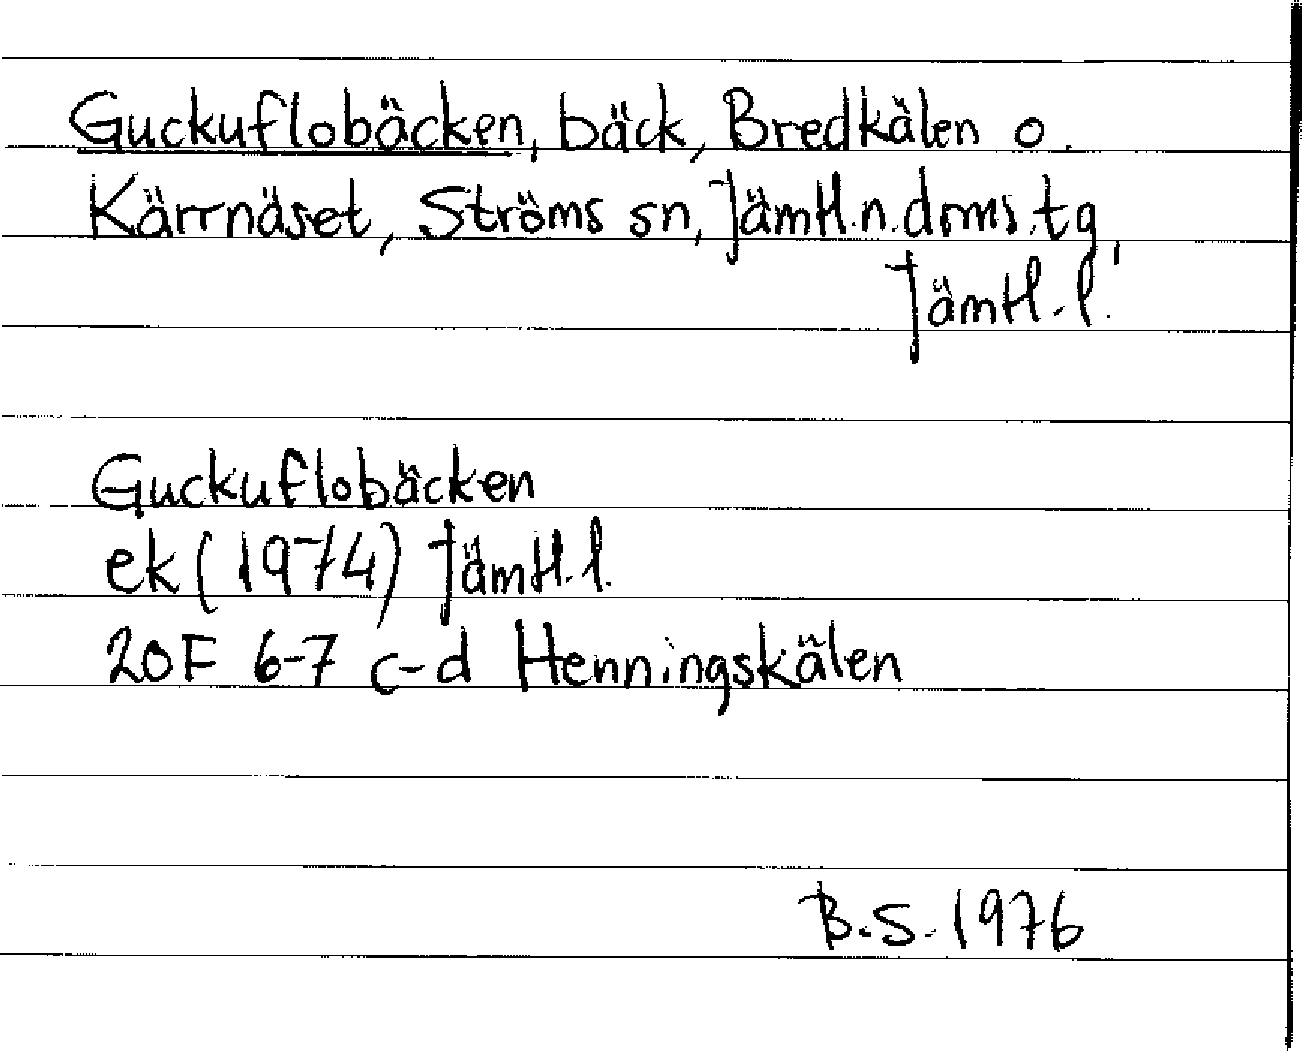 Guckuflobäcken, bäck, Bredkälen o.
Kärrnäset, Ströms sn, Jämtl.n.doms.tg,
Jämtl.l.
Guckuflobäcken
ek (1974) Jämtl.l.
20F 6-7 c-d Henningskälen
B.S. 1976